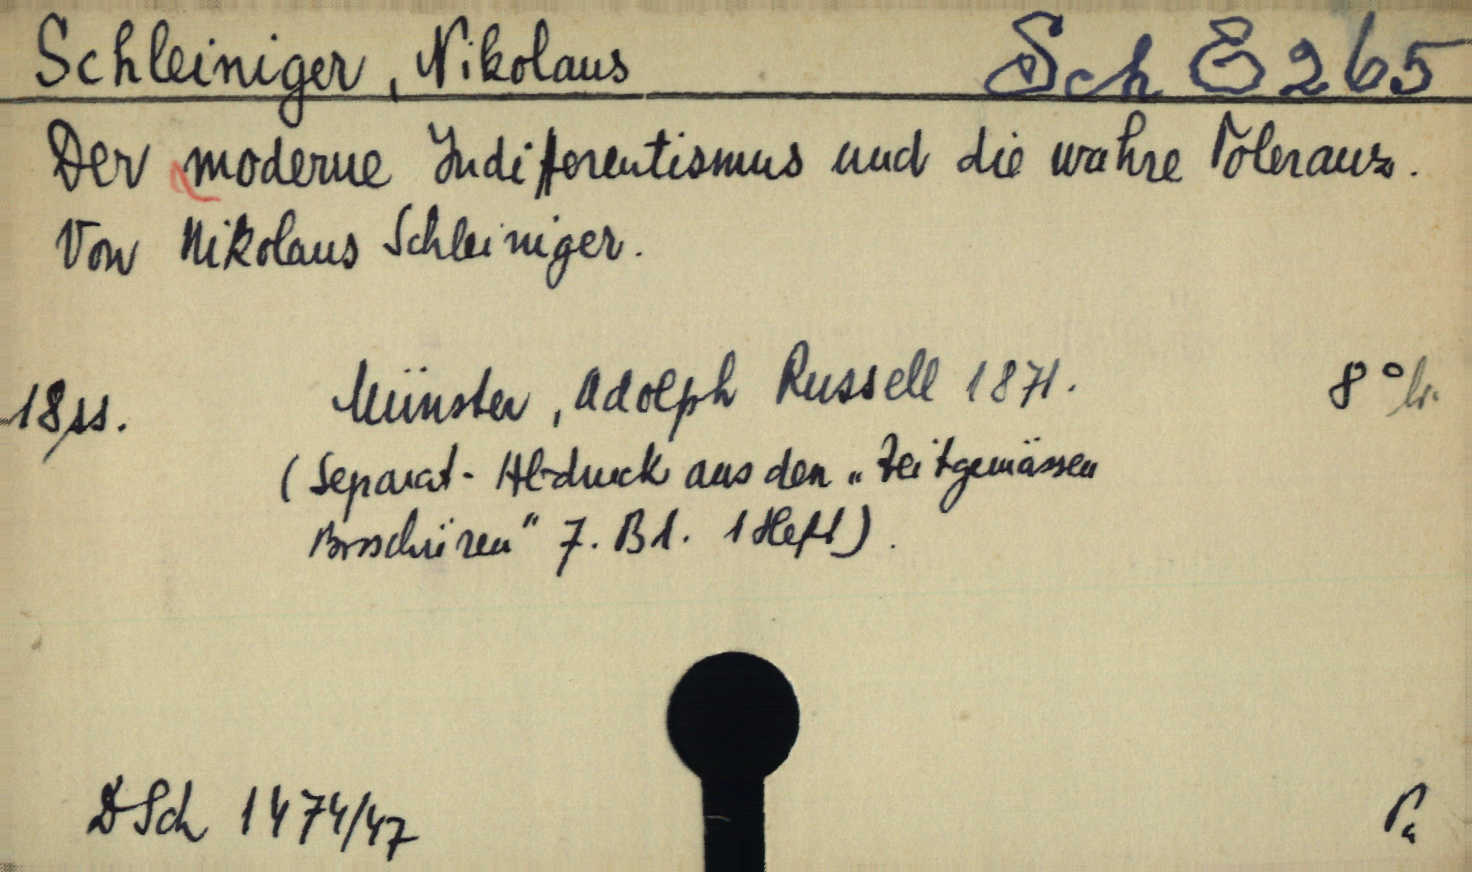 Schleiniger, Nikolaus Sch E 265
Der moderne Indifferentismus und die wahre Toleranz.
Von Nikolaus Schleiniger.
18 ss. Münster, Adolph Russell 1871. 8° br.
(Separat-Abdruck aus den „Zeitgemässen
Broschüren" 7. Bd. 1 Heft).
DSch 1474/47